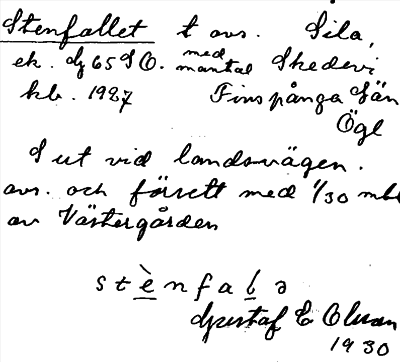 Stenfallet t avs. Sila,
ek. dj 65 S O. med mantal Skedevi
kb. 1927 Finspånga län
Ögl
S ut vid landsvägen.
avs. och försett med 1/30 mtl
av Västergården
stènfaḷə
Gustaf E Olsson
1930